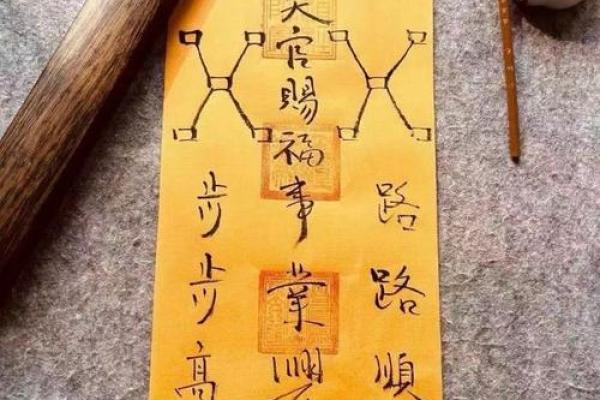 路路順
天官賜福事業興
步步高